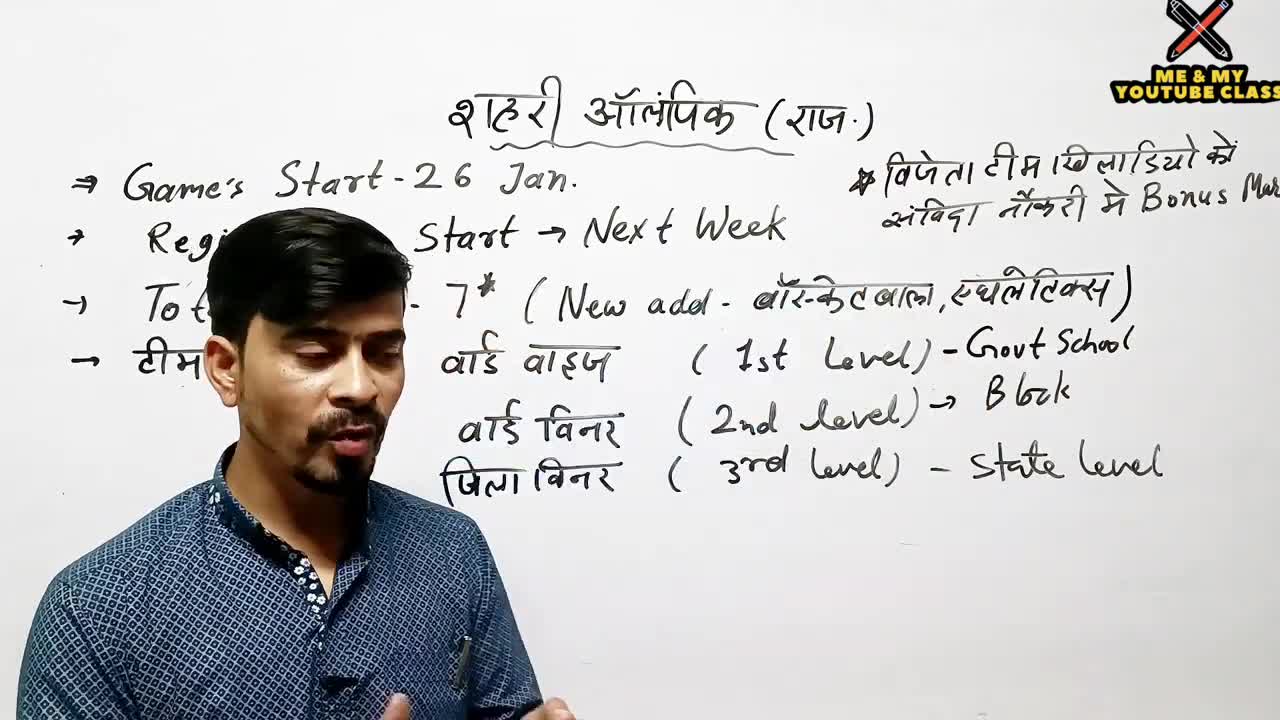 ME & MY
YOUTUBE CLASS
शहरी ऑलंपिक (राज.)
⇒ Game's Start - 26 Jan.
* विजेता टीम खिलाडियो को
संविदा नौकरी मे Bonus Mar
→ Regi Start → Next Week
→ Tot - 7* (New add - बॉस्केटबाला, एथलेटिक्स)
→ टीम वार्ड वाइज (1st level) - Govt School
वार्ड विनर (2nd level) → Block
जिला विनर (3rd level) - State level